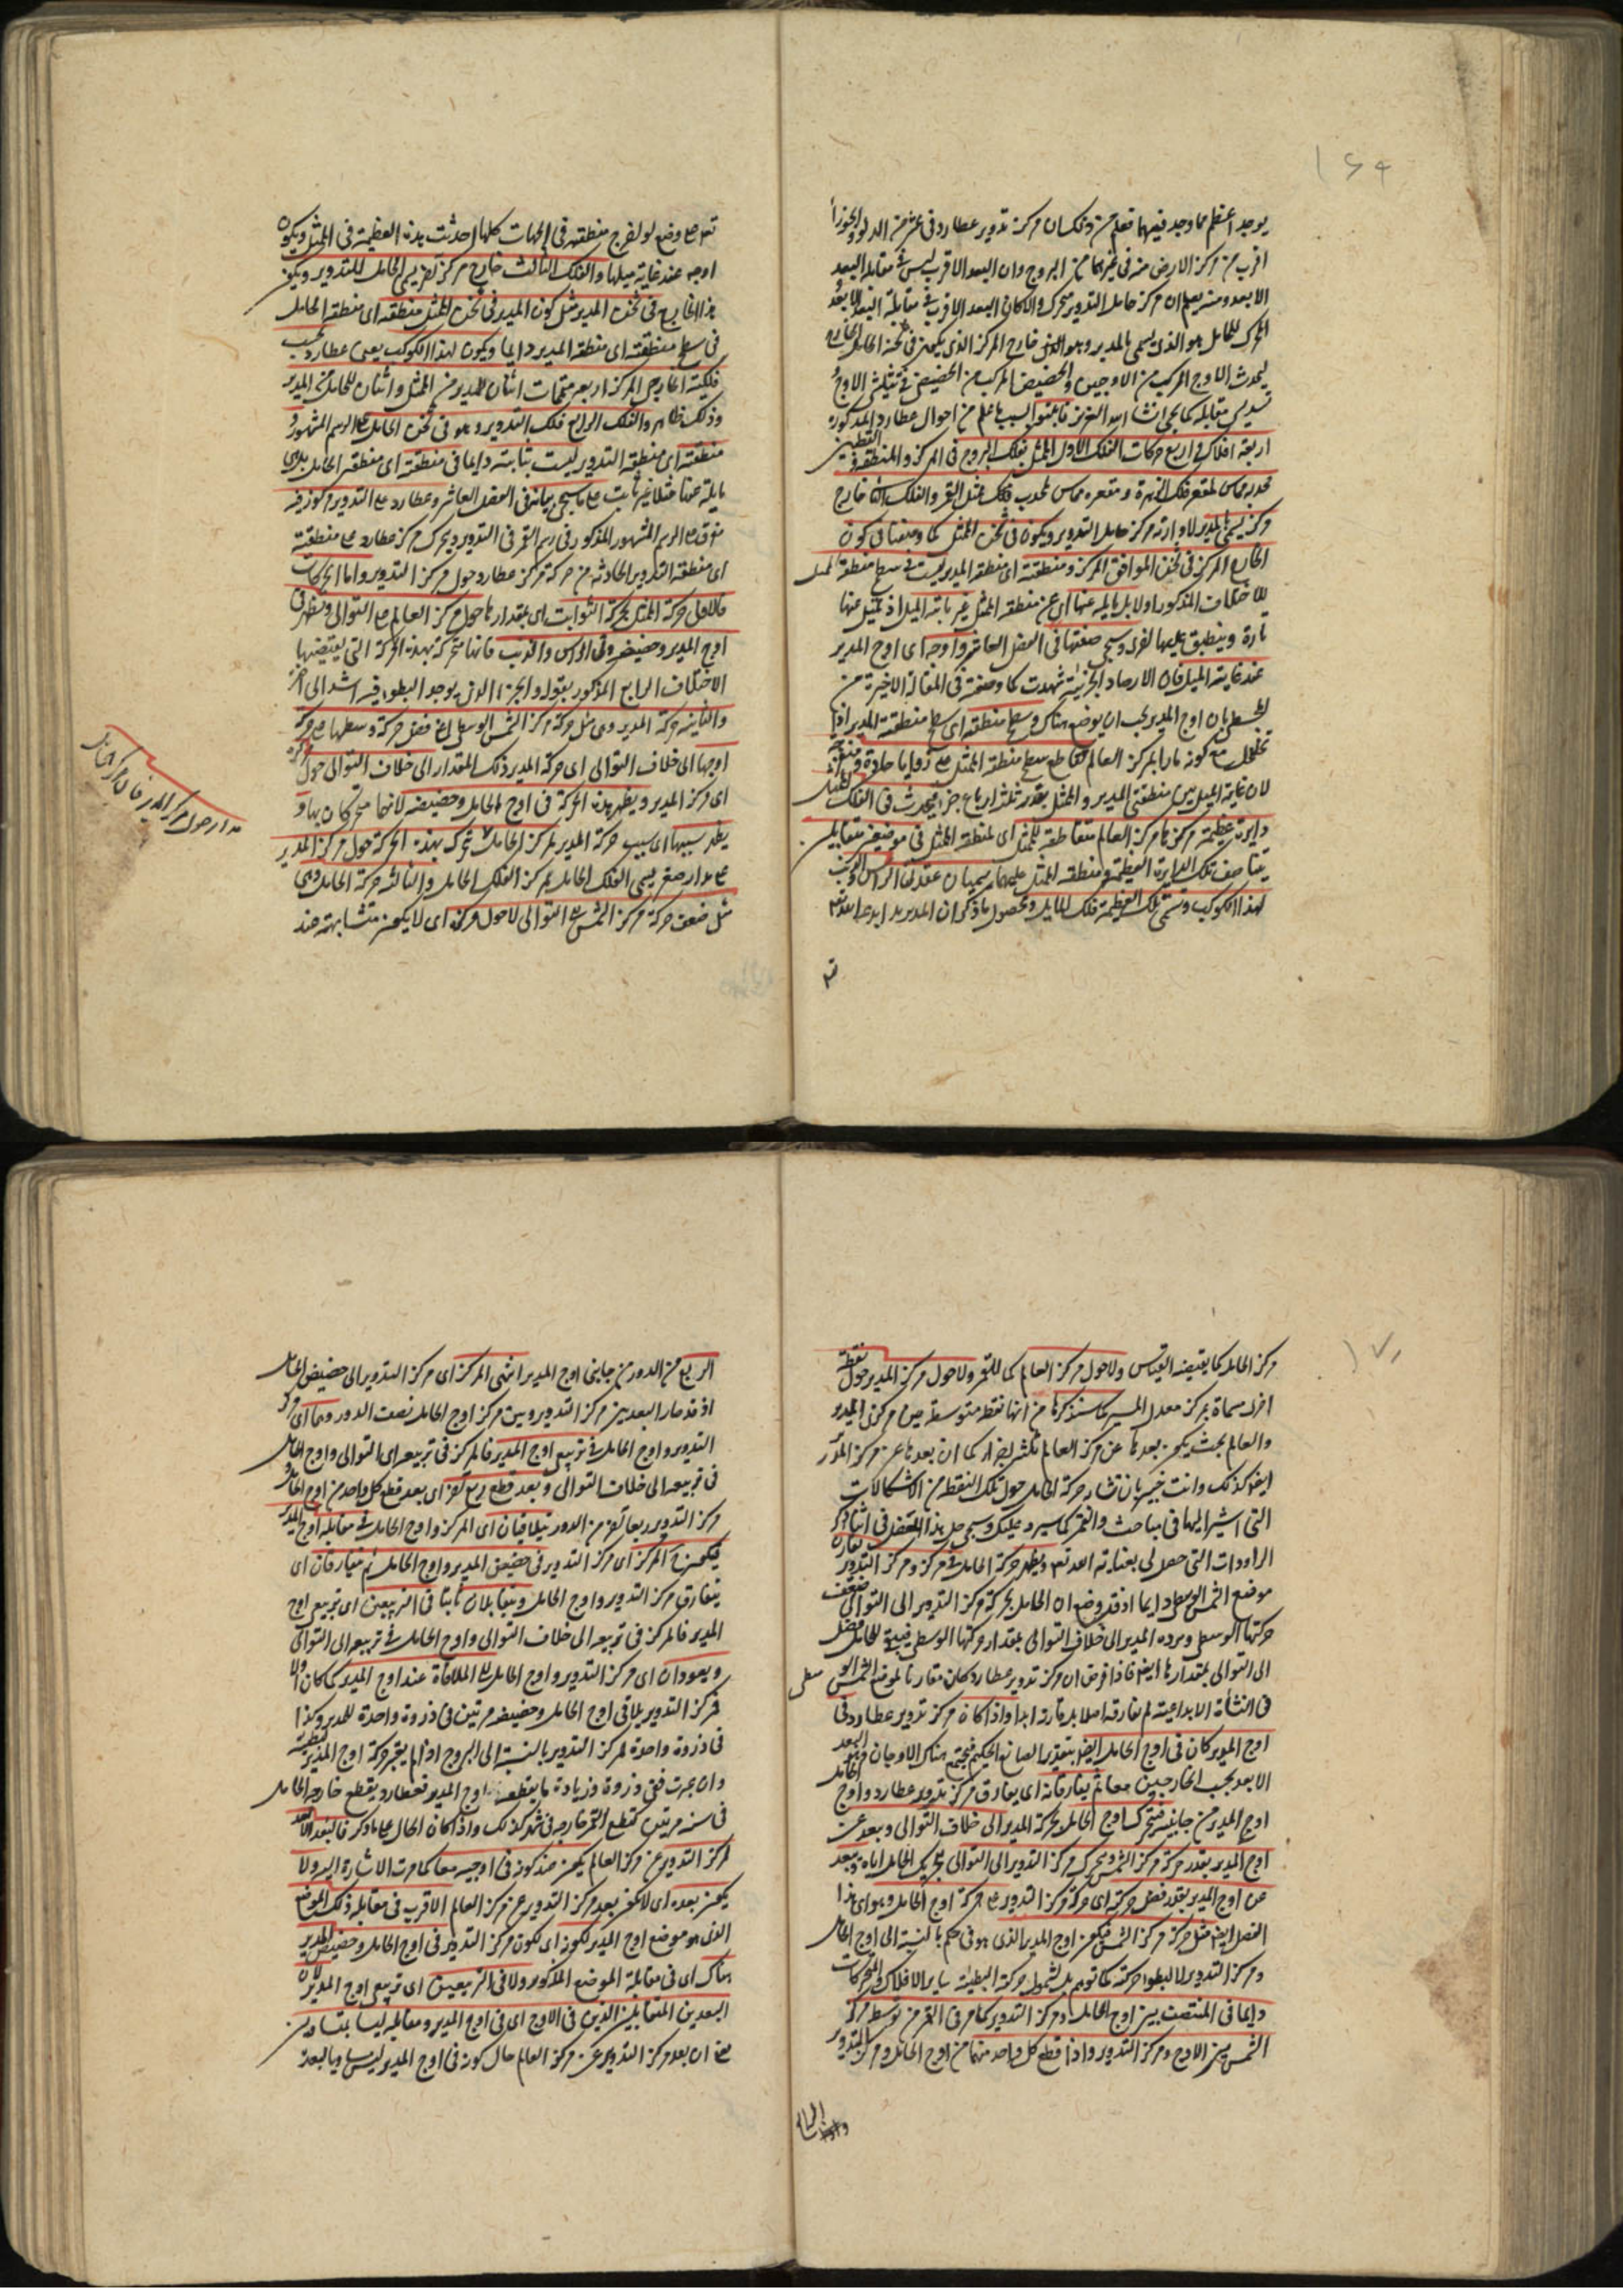 ١٦٩
يوجد اعظم مما وجد فيهما فعلم من ذلك ان مركز تدوير عطارد في عشر من الدلو والجوزا
اقرب من مركز الارض منه في غيرهما من البروج وان البعد الاقرب ليس في مقابلة البعد
الابعد ومنه يعلم ان مركز حامل التدوير متحرك والا لكان البعد الاقرب في مقابلة البعد الابعد
المحرك للحامل هو الذي يسمى بالمدير وهو الذي خارج المركز الذي يكون في ثخنه الحامل الخارج
ليحدث الاوج المركب من الاوجين والحضيض المركب من الحضيضين في تثليثي الاوج
تسديسي مقابله كما يجي ان شا الله العزيز فاثبتوا لسبب ما علم من احوال عطارد المذكورة
اربعة افلاك في اربع حركات الفلك الاول الممثل بفلك البروج في المركز والمنطقة والقطبين
محدبه مماس لمقعر فلك الزهرة ومقعره مماس لمحدب فلك ممثل القمر والفلك الثاني خارج
مركز يسمى بالمدير لادارته مركز حامل التدوير ويكون في ثخن الممثل كما وصفنا في كون
الخارج المركز في ثخن الموافق المركز ومنطقته اى منطقة المدير ليست في سطح منطقة الممثل
للاختلاف المذكور اولا بل مايله عنها اى عن منطقة الممثل غير ثابتة الميل اذ تميل عنها
تارة وينطبق عليها اخرى وسيجي صفتها في الفصل العاشر واوجه اى اوج المدير
عند غاية الميل فان الارصاد الجزئية شهدت كما وصفه في المقالة الاخيرة من
المجسطي بان اوج المدير يجب ان يوضع هناك وسطح منطقته اى سطح منطقة المدير اذا
تخيل مع كونه مارا بمركز العالم قاطع سطح منطقة الممثل على زوايا حادة ومنفرجة
لان غاية الميل بين منطقتي المدير والممثل بقدر ثلثة ارباع جزء فيحدث في الفلك الممثل
دايرة عظيمة مركزها مركز العالم متقاطعة للممثل اى لمنطقة الممثل في موضعين متقابلين
يتناصف تلك الدايرة العظيمة ومنطقة الممثل عليهما يسميان عقدتي الراس والذنب
لهذا الكوكب وتسمى تلك العظيمة فلك المايل ومحصول ما ذكر ان المدير
تعـ
تعـ على وضع لو اخرج منطقته في الجهات كلها احدثت هذه العظيمة في الممثل ويكون
اوجه عند غاية ميلها والفلك الثالث خارج مركز اخر يسمى الحامل للتدوير ويكون
هذا الخارج في ثخن المدير مثل كون المدير في ثخن الممثل منطقته اى منطقة الحامل
في سطح منطقته اى منطقة المدير دايما ويكون لهذا الكوكب يعني عطارد بحسب
فلكية الخارجي المركز اربع متممات اثنان للمدير من الممثل واثنان للحامل من المدير
وذلك ظاهر والفلك الرابع فلك التدوير وهو في ثخن الحامل على الرسم المشهور
منطقته اى منطقة التدوير ليست بثابتة دايما في منطقته اى منطقة الحامل بل هي
مايلة عنها ميلا غير ثابت على ما سيجي بيانه في الفصل العاشر وعطارد على التدوير مركوز فيه
مغرق على الرسم المشهور المذكور في رسم القمر في التدوير ويحرك مركز عطارد على منطقته
اى منطقة التدوير الحادثة من حركة مركز عطارد حول مركز التدوير واما الحركات
فالاولى حركة الممثل بحركة الثوابت اى بمقدارها حول مركز العالم على التوالي ويظهر في
اوج المدير وحضيضه وفي الراس والذنب فانها متحركة بهذه الحركة التي يقتضيها
الاختلاف الرابع المذكور بقوله والجزء الذي يوجد البطؤ فيه اشد الى اخره
والثانية حركة المدير وهي مثل حركة مركز الشمس الوسطى اعني فضل حركة وسطها على حركة
اوجها الى خلاف التوالي اى حركة المدير ذلك المقدار الى خلاف التوالي حول مركزه
اى مركز المدير ويظهر هذه الحركة في اوج الحامل وحضيضه لانهما متحركان بها و
يظهر بسببها اى بسبب حركة المدير لمركز الحامل تحرك بهذه الحركة حول مركز المدير
على مدار صغير يسمى الفلك الحامل لمركز الفلك الحامل والثالثة حركة الحامل وهي
مثل ضعف حركة مركز الشمس على التوالي لا حول مركزه اى لا يكون متشابهة عند
مدار حول مركز المدير
١٧٠
مركز الحامل كما يقتضيه القياس ولا حول مركز العالم كما للقمر ولا حول مركز المدير بل حول نقطة
اخرى مسماة بمركز معدل المسير كما سنذكرها من انها نقطة متوسطة بين مركزي المدير
والعالم بحيث يكون بعدها عن مركز العالم كثلثة اجزاء كما ان بعدها عن مركز المدير
ايضا كذلك وانت خبير بان تشابه حركة الحامل حول تلك النقطة من الاشكالات
التي اشير اليها في مباحث والقمر كما سيرد عليك وسيجي حل هذا المعضل في اثنا ذكر
الارادات التي حصل لي بعناية الله تع ويظهر حركة الحامل في مركز ومركز التدوير يقارن
موضع الشمس الوسطى دايما اذ قد وضع ان الحامل يحرك مركز التدوير الى التوالي ضعف
حركتها الوسطى ويرده المدير الى خلاف التوالي بمقدار حركتها الوسطى فيبقى للحامل فضل
الى التوالي بمقدارها ايضا فاذا فرض ان مركز تدوير عطارد كان مقارنا لموضع الشمس الوسطى
في النشأة الابداعية لم يفارقه اصلا بل يقارنه ابدا واذا كان مركز تدوير عطارد في
اوج المدير كان في اوج الحامل ايضا بتقدير الصانع الحكيم فيجتمع هناك الاوجان وهو البعد
الابعد بحسب الخارجين معا ثم يتفارقان اى يفارق مركز تدوير عطارد واوج الحامل
اوج المدير من جانبيه فيتحرك اوج الحامل بحركة المدير الى خلاف التوالي وبعد عن
اوج المدير بقدر حركة مركز الشمس ويتحرك مركز التدوير الى التوالي بتحريك الحامل اياه وبعد
عن اوج المدير بقدر فضل حركته اى حركة مركز التدوير على حركة اوج الحامل وهو اى هذا
الفضل ايضا مثل حركة مركز الشمس فيكون اوج المدير الذي هو في حكم بالنسبة الى اوج الحامل
ومركز التدوير لا لبطؤ حركته كما توهم بل لشمول حركته البطيئة ساير الافلاك والمتحركات
دايما في المنتصف بين اوج الحامل ومركز التدوير كما مر في القمر من توسط مركز
الشمس بين الاوج ومركز التدوير واذا قطع كل واحد منهما من اوج الحامل ومركز التدوير
الربع من الدور من جانبي اوج المدير انتهى المركز اى مركز التدوير الى حضيض الحامل
اذ قد صار البعد بين مركز التدوير وبين مركز اوج الحامل نصف الدور وهما اى مركز
التدوير واوج الحامل في تربيع اوج المدير فالمركز في تربيعه الى التوالي واوج الحامل
في تربيعه الى خلاف التوالي وبعد قطع ربع اخر اى بعد قطع كل واحد من اوج الحامل و
مركز التدوير ربعا اخر من الدور يتلاقيان اى المركز واوج الحامل في مقابلة اوج المدير
فيكون المركز اى مركز التدوير في حضيض المدير واوج الحامل ثم يتفارقان اى
يتفارق مركز التدوير واوج الحامل ويتقابلان ثانيا في التربيعين اى تربيعي اوج
المدير فالمركز في تربيعه الى خلاف التوالي واوج الحامل في تربيعه الى التوالي
ويعودان اى مركز التدوير واوج الحامل الى الملاقاة عند اوج المدير كما كانا اولا
فمركز التدوير يلاقي اوج الحامل وحضيضه مرتين في دورة واحدة للمدير وكذا
في دورة واحدة لمركز التدوير بالنسبة الى البروج اذا لم يعتبر حركة اوج المدير البطيئة
وان عبرت ففي دورة وزيادة ما يقطعه اوج المدير فعطارد يقطع خارجه الحامل
في سنة مرتين كقطع القمر خارجه في شهر كذلك واذا كان الحال على ما ذكر فالبعد الابعد
لمركز التدوير عن مركز العالم يكون عند كونه في اوجيه معا كما مرت الاشارة اليه ولا
يكون بعده اى لا يكون بعد مركز التدوير عن مركز العالم الاقرب في مقابلة ذلك الموضع
الذي هو موضع اوج المدير لكونه اى لكون مركز التدوير في اوج الحامل وحضيض المدير
هناك اى في مقابلة الموضع المذكور ولا في التربيعين اى تربيعي اوج المدير لان
البعدين المتقابلين الذين في الاوج اى في اوج المدير ومقابله ليسا بمتساويين
على ان بعد مركز التدوير عن مركز العالم حال كونه في اوج المدير ليس مساويا لبعده